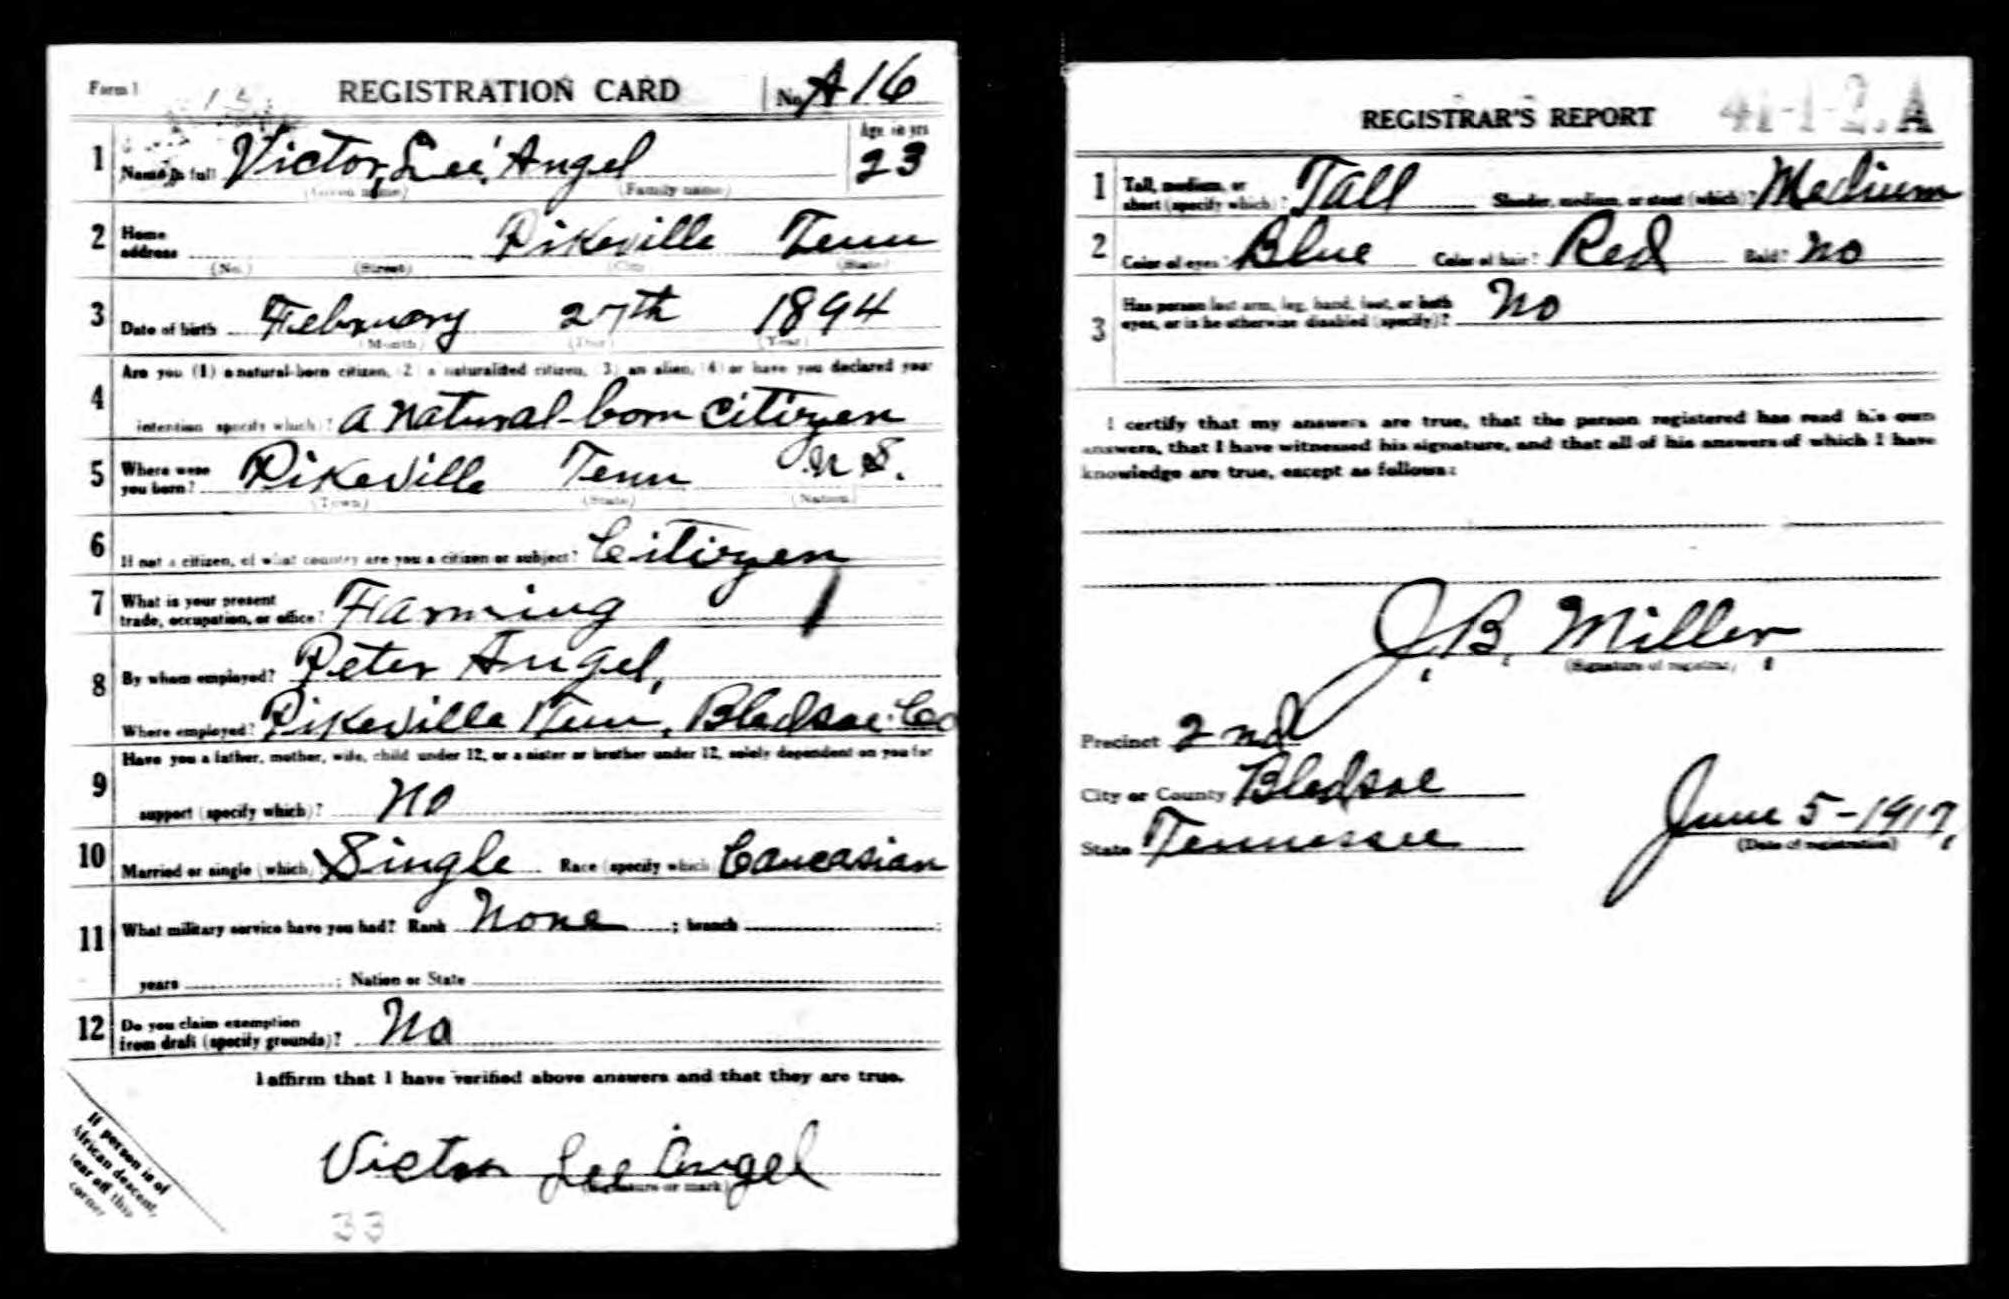 Form 1 REGISTRATION CARD No. A16
1 Name in full Victor, Lee, Angel Age in yrs 23
(Given name) (Family name)
2 Home address Pikeville Tenn
(No.) (Street) (City) (State)
3 Date of birth February 27th 1894
(Month) (Day) (Year)
4 Are you (1) a natural-born citizen, (2) a naturalized citizen, (3) an alien, (4) or have you declared your
intention (specify which)? a natural-born citizen
5 Where were you born? Pikeville Tenn U.S.
(Town) (State) (Nation)
6 If not a citizen, of what country are you a citizen or subject? Citizen
7 What is your present trade, occupation, or office? Farming
8 By whom employed? Peter Angel,
Where employed? Pikeville Tenn, Bledsoe Co
9 Have you a father, mother, wife, child under 12, or a sister or brother under 12, solely dependent on you for
support (specify which)? No
10 Married or single (which) Single Race (specify which) Caucasian
11 What military service have you had? Rank None ; branch ;
years ; Nation or State
12 Do you claim exemption from draft (specify grounds)? No
I affirm that I have verified above answers and that they are true.
Victor Lee Angel
(Signature or mark)
If person is of
African descent,
tear off this
corner
33
REGISTRAR'S REPORT 41-1-2. A
1 Tall, medium, or short (specify which)? Tall Slender, medium, or stout (which)? Medium
2 Color of eyes? Blue Color of hair? Red Bald? No
3 Has person lost arm, leg, hand, foot, or both
eyes, or is he otherwise disabled (specify)? No
I certify that my answers are true, that the person registered has read his own
answers, that I have witnessed his signature, and that all of his answers of which I have
knowledge are true, except as follows:
J. B. Miller
(Signature of registrar)
Precinct 2nd
City or County Bledsoe
State Tennessee June 5-1917,
(Date of registration)